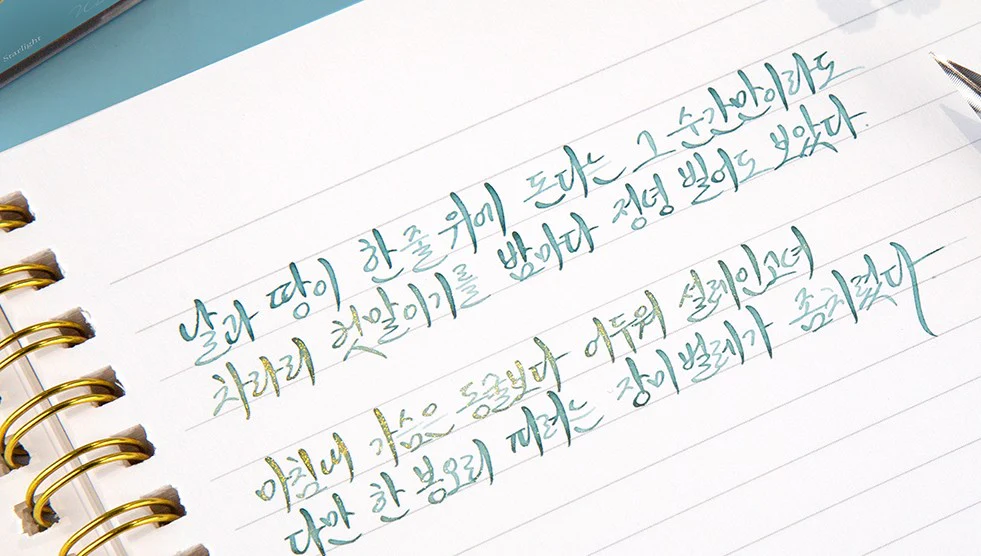 Starlight
날과 땅이 한 줄 위에 돈다는 그 순간만이라도
차라리 헛말이기를 밤마다 정녕 빌어도 보았다
마침내 가슴은 동굴보다 어두워 설레인고녀
다만 한 봉오리 피려는 장미 벌레가 좀치렸다